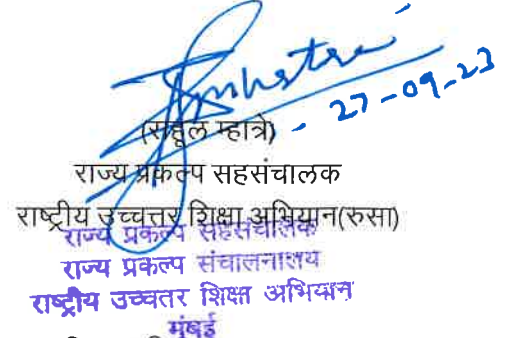 - 27-09-23
(राहुल म्हात्रे)
राज्य प्रकल्प सहसंचालक
राष्ट्रीय उच्चत्तर शिक्षा अभियान(रुसा)
राज्य प्रकल्प सहसंचालक
राज्य प्रकल्प संचालनालय
राष्ट्रीय उच्चतर शिक्षा अभियान
मुंबई